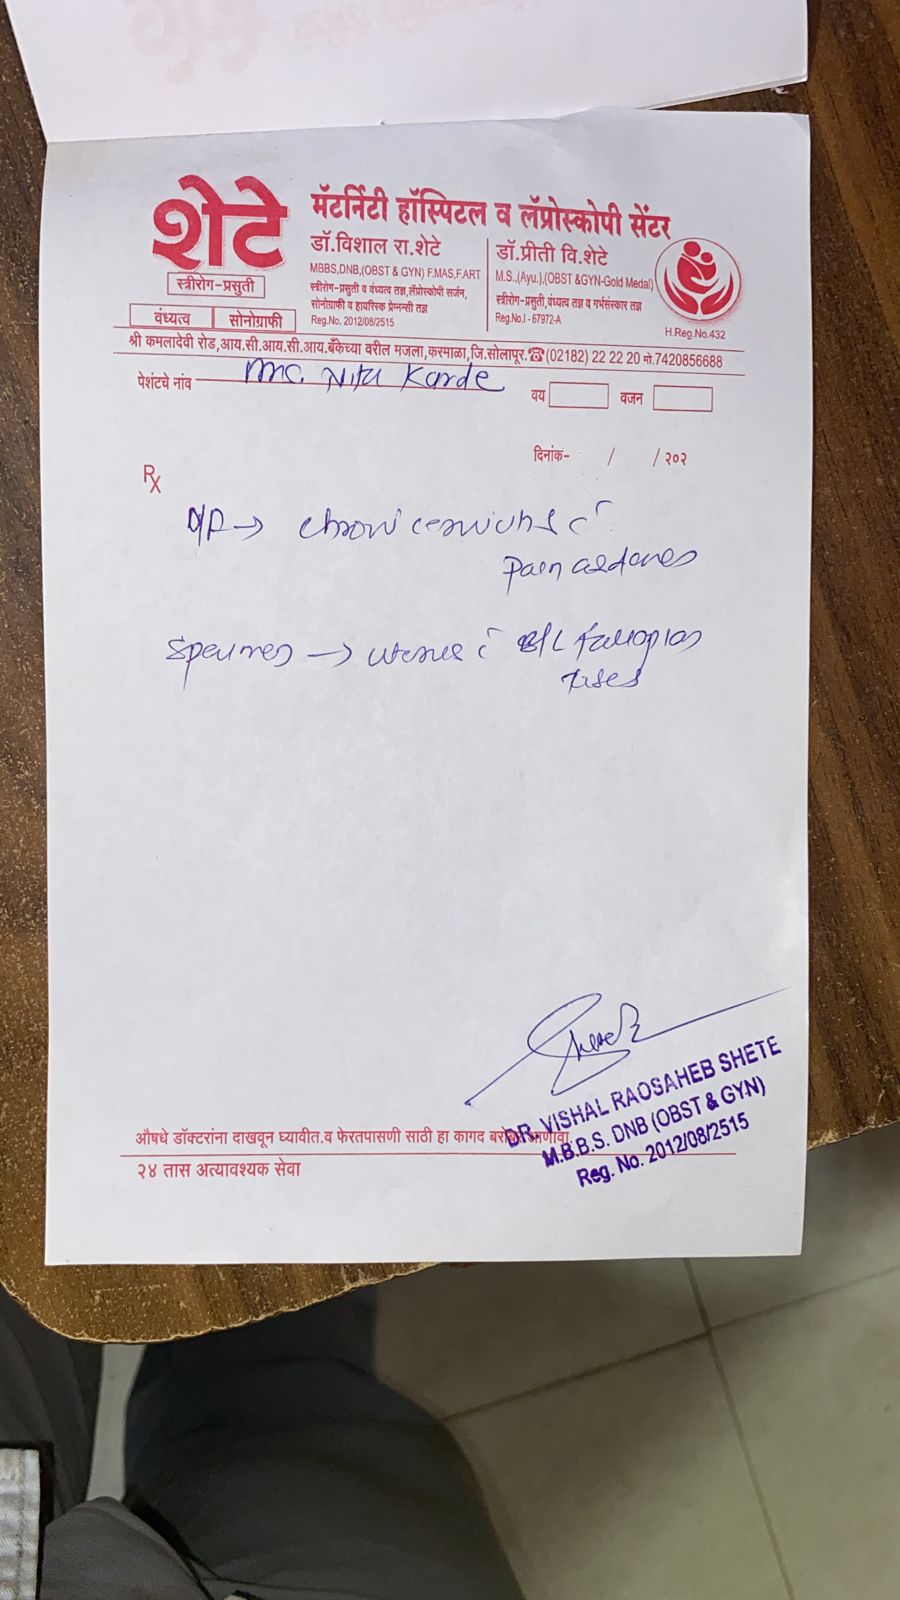 शेटे
मॅटर्निटी हॉस्पिटल व लॅप्रोस्कोपी सेंटर
स्त्रीरोग-प्रसुती
वंध्यत्व सोनोग्राफी
डॉ.विशाल रा.शेटे
MBBS,DNB,(OBST & GYN) F.MAS,F.ART
स्त्रीरोग-प्रसुती व वंध्यत्व तज्ञ,लॅप्रोस्कोपी सर्जन,
सोनोग्राफी व हायरिस्क प्रेग्नन्सी तज्ञ
Reg.No. 2012/08/2515
डॉ.प्रीती वि.शेटे
M.S.,(Ayu.),(OBST &GYN-Gold Medal)
स्त्रीरोग-प्रसुती,वंध्यत्व तज्ञ व गर्भसंस्कार तज्ञ
Reg.No.I - 67972-A
H.Reg.No.432
श्री कमलादेवी रोड,आय.सी.आय.सी.आय.बँकेच्या वरील मजला,करमाळा,जि.सोलापूर.☎(02182) 22 22 20 मो.7420856688
पेशंटचे नांव Nita Karde
वय वजन
दिनांक- / / २०२
Rx
→ c̄
Specimen → uterus c̄ B/L fallopian
tubes
DR. VISHAL RAOSAHEB SHETE
M.B.B.S. DNB (OBST & GYN)
Reg. No. 2012/08/2515
औषधे डॉक्टरांना दाखवून घ्यावीत.व फेरतपासणी साठी हा कागद
२४ तास अत्यावश्यक सेवा